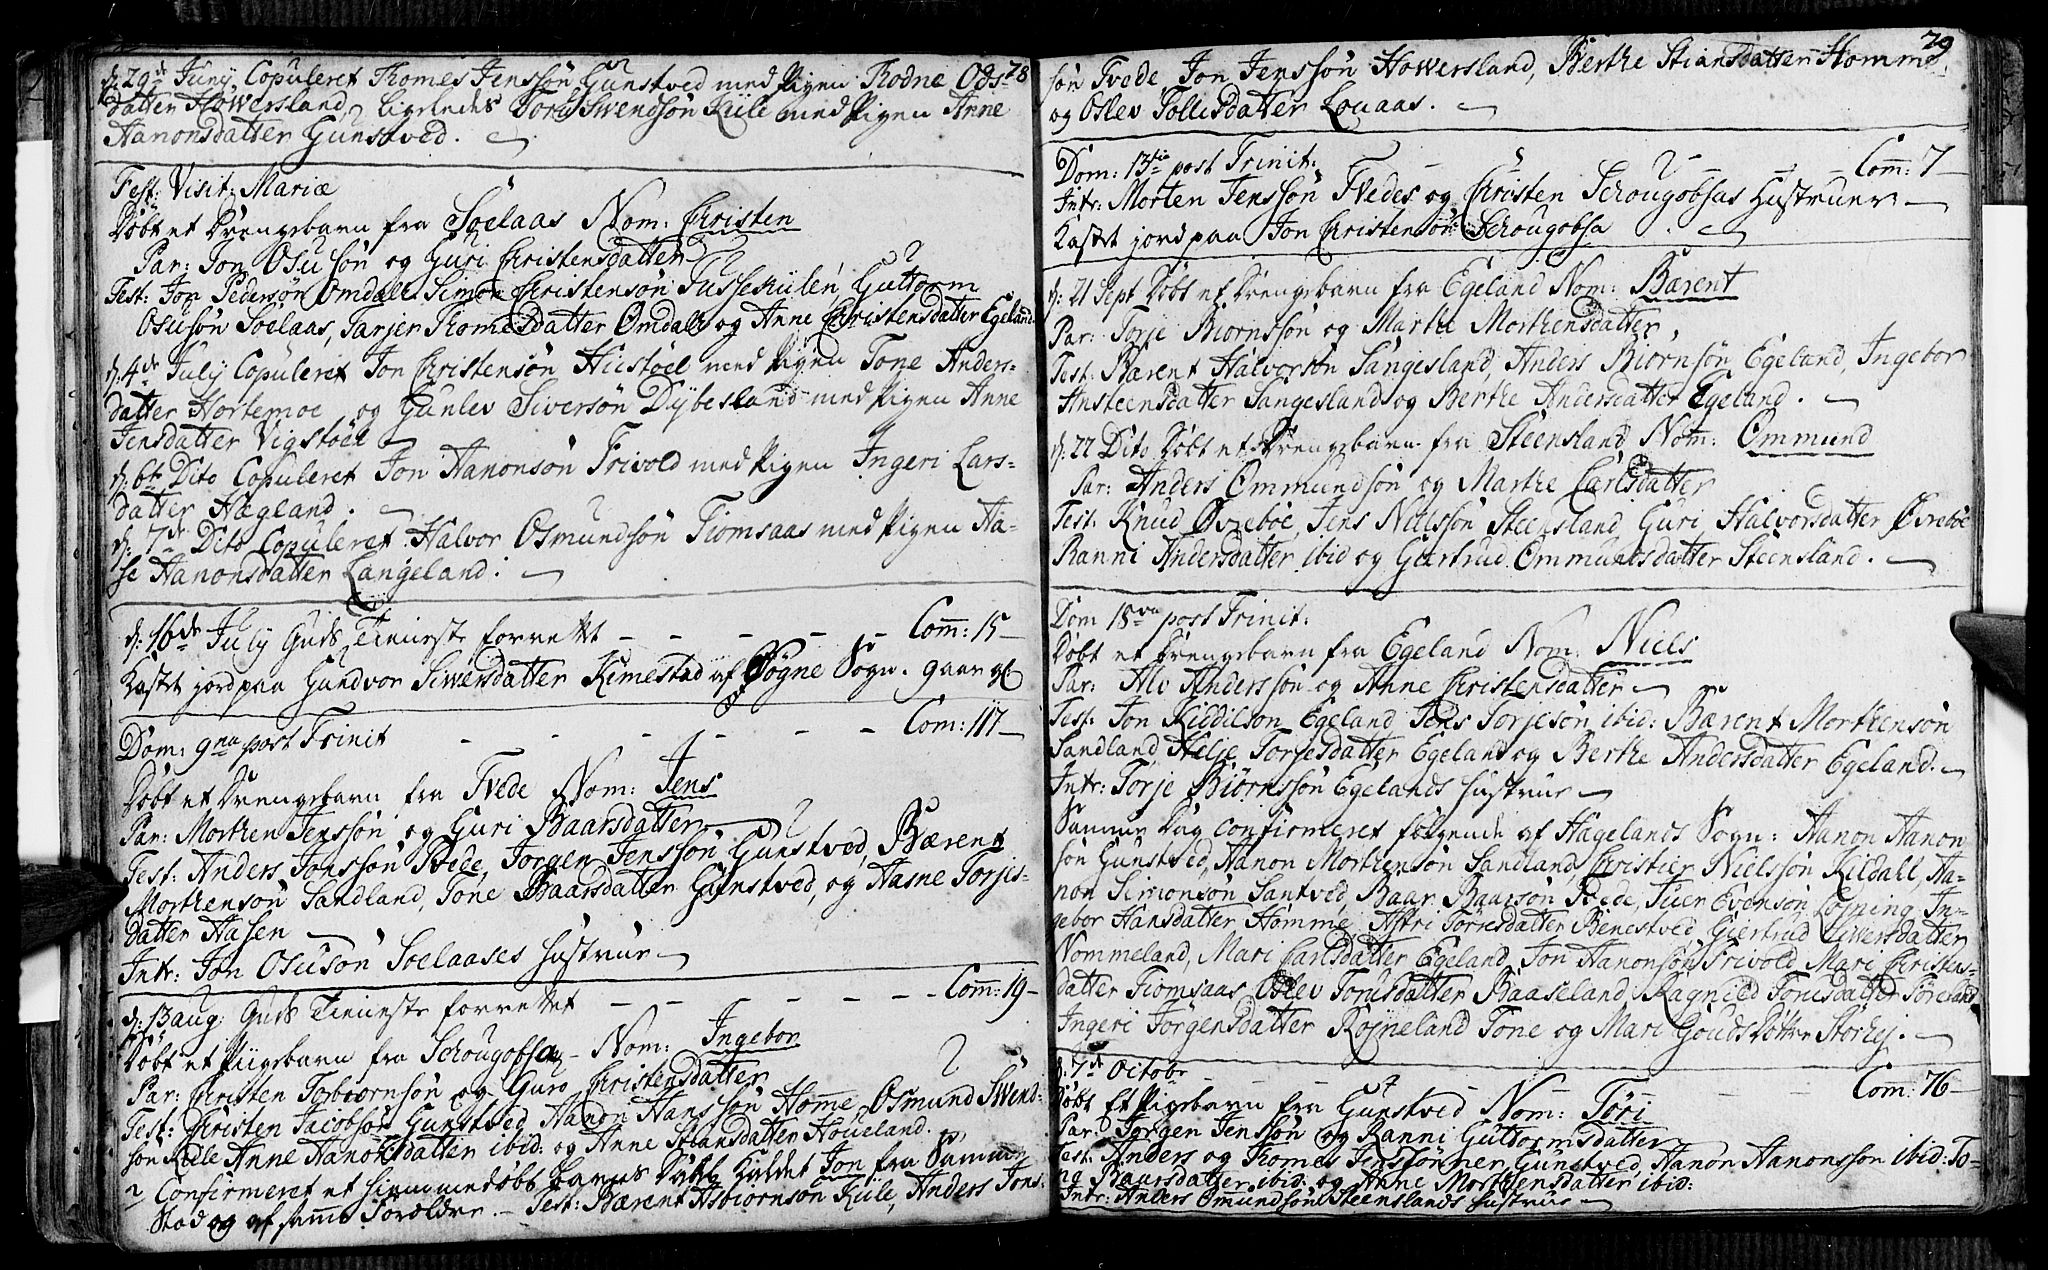 28
d: 29de Juny Copuleret Thomes Jenssøn Gunstved med Pigen Thodne Ods-
datter Howersland, ligeledes Tore Swendsøn Kiile med Pigen Anne
Aanonsdatter Gunstved.
Fest: Visit: Mariæ
Døbt et Drengebarn fra Soelaas Nom: Christen
Par: Jon Osusøn og Guri Christensdatter
Test: Jon Pedersøn Omdall Simon Christensøn Tussekiilen, Guttorm
Osusøn Soelaas, Tarjer Thomesdatter Omdall og Anne Christensdatter Egeland
d: 4de July Copuleret Jon Christensøn Hiistøel med Pigen Tone Anders-
datter Hortemoe, og Gunlev Siversøn Dybesland med Pigen Anne
Jensdatter Vigstøel
d: 6te Dito Copuleret Jon Aanonsøn Trivold med Pigen Ingeri Lars-
datter Hægland.
d: 7de Dito Copuleret Halvor Osmundsøn Tiomsaas med Pigen Aa-
se Aanonsdatter Langeland.
d: 16de July Guds Tieneste forrettet - - - - - Com: 15
Kastet jord paa Gundvor Siwersdatter Kimestad af Søgne Sogn. 9 aar gl
Dom: 9na post Trinit - - - - - Com: 117
Døbt et Drengebarn fra Tvede Nom: Jens
Par: Morthen Jenssøn og Guri Baarsdatter
Test: Anders Jonssøn Tvede, Jørgen Jenssøn Gunstved, Bærent
Morthensøn Sandland, Tone Baarsdatter Gunstved, og Aasne Torjis-
datter Aasen
Intr: Jon Osusøn Soelaases Hustrue
d: 13 aug: Guds Tieneste forrettet - - - - - Com: 19
Døbt et Piigebarn fra Schougobsa - Nom: Ingebor
Par: Christen Torbiørnsøn og Guro Christensdatter
Test: Christen Jacobsøn Gunstved, Aanon Hanssøn Home, Osmund Swend-
søn Kiile Anne Aanonsdatter ibid: og Anne Stiansdatter Houeland.
Confirmeret et hiemmedøbt Barnes Daab Kaldet Jon fra Samme
Stad og af samme Forældre. - Test: Bærent Asbiørnsøn Kiile, Anders Jons-
29
søn Tvede Jon Jenssøn Howersland, Berthe Stiansdatter Homme
og Oslev Tollisdatter Louaas.
Dom: 13tia post Trinit: - - - - - Com: 7
Intr: Morten Jenssøn Tvedes og Christen Schougobsas Hustruer
Kastet jord paa Jon Christensøn Schougobsa
d: 21 Sept Døbt et Drengebarn fra Egeland Nom: Bærent
Par: Torje Biørnssøn og Marthe Morthensdatter,
Test: Bærent Halvorsøn Sangesland, Anders Biørnsøn Egeland, Ingebor
Ansteensdatter Sangesland og Berthe Andersdatter Egeland.
d: 22 Dito Døbt et Drengebarn fra Steensland Nom: Ommund
Par: Anders Ommundsøn og Marthe Carlsdatter
Test: Knud Øvrebøe, Jens Nielssøn Steensland, Guri Halvorsdatter Øvrebøe
Ranni Andersdatter ibid og Giertrud Ommundsdatter Steensland.
Dom 18va post Trinit:
Døbt et Drengebarn fra Egeland Nom: Niels
Par: Alv Anderssøn og Anne Christensdatter
Test: Jon Kiddilsøn Egeland Jens Torjesøn ibid: Bærent Morthensøn
Sandland, Helje Torjesdatter Egeland og Berthe Andersdatter Egeland.
Intr: Torje Biørnssøn Egelands Hustrue
Samme Dag confirmeret følgende af Hægelands Sogn: Aanon Aanon
søn Gunstved, Aanon Morthensøn Sandland, Christier Nielssøn Kildahl, Aa-
non Simonsøn Santved, Baar Baarsøn Tvede, Iver Evensøn Løyning, In-
gebor Hansdatter Homme, Astri Torresdatter Benestved, Giertrud Siwersdatter
Nommeland, Mari Carlsdatter Egeland, Jon Aanonsøn Trivold, Mari Christens-
datter Tiomsaas Oslev Torusdatter Baaseland, Ragnild Torusdatter Søreland
Ingeri Jørgensdatter Røjneland Tone og Mari Gouds Døttre Storhej.
d: 7de Octobr - - - - - Com: 76
Døbt et Pigebarn fra Gunstved Nom: Tøri
Par: Jørgen Jenssøn og Ranni Guttormsdatter
Test: Anders og Thomes Jenssønner Gunstved, Aanon Aanonssøn ibid: To-
ne Baarsdatter ibid: og Anne Morthensdatter ibid:
Intr: Anders Omundsøn Steenslands Hustrue